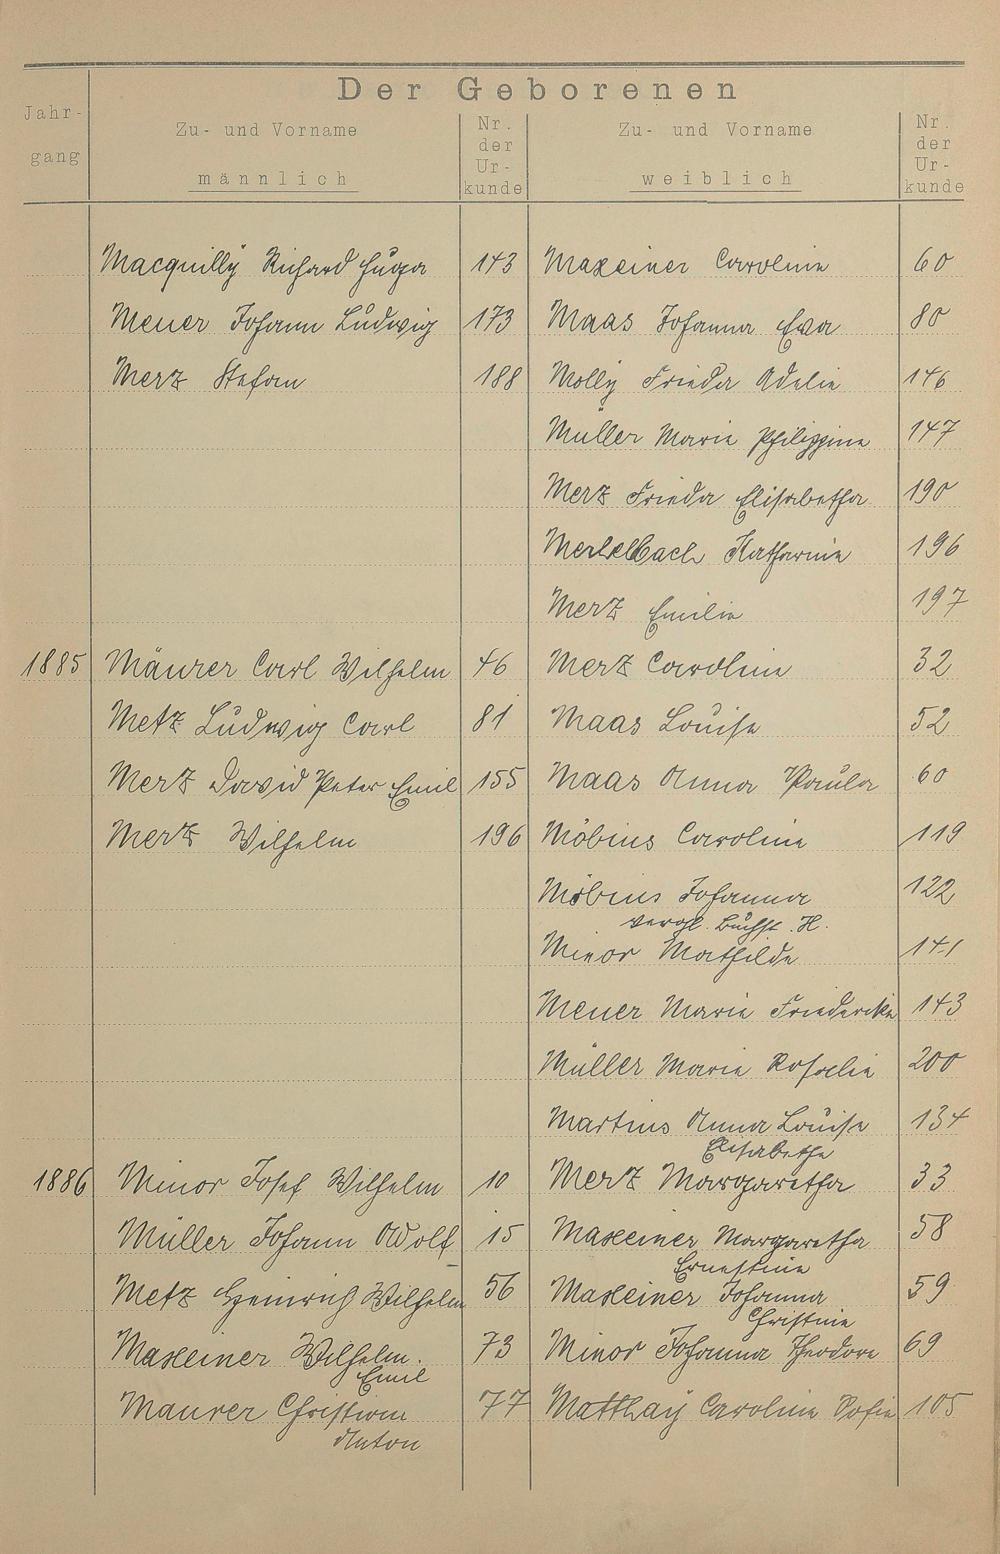 Der Geborenen
Jahr-
gang
Zu- und Vorname
männlich
Nr.
der
Ur-
kunde
Zu- und Vorname
weiblich
Nr.
der
Ur-
kunde
Macquilly Richard Hugo 143 Maxeiner Caroline 60
Meuer Johann Ludwig 173 Maas Johanna Eva 80
Merz Stefan 188 Molly Frieda Adelie 146
Müller Marie Philippine 147
Merz Frieda Elisabetha 190
Merkelbach Katharine 196
Merz Emilie 197
1885 Mäurer Carl Wilhelm 46 Merz Caroline 32
Metz Ludwig Carl 81 Maas Louise 52
Merz David Peter Emil 155 Maas Anna Paula 60
Merz Wilhelm 196 Möbius Caroline 119
Möbius Johanna 122
vergl. Buchst. H.
Minor Mathilde 141
Meuer Marie Friederike 143
Müller Marie Rosalie 200
Martius Anna Louise 134
Elisabethe
1886 Minor Josef Wilhelm 10 Merz Margaretha 33
Müller Johann Adolf 15 Maxeiner Margaretha 58
Ernestine
Metz Heinrich Wilhelm 56 Maxeiner Johanna 59
Christine
Maxeiner Wilhelm 73 Minor Johanna Theodore 69
Emil
Maurer Christian 77 Matthäy Caroline Sofie 105
Anton